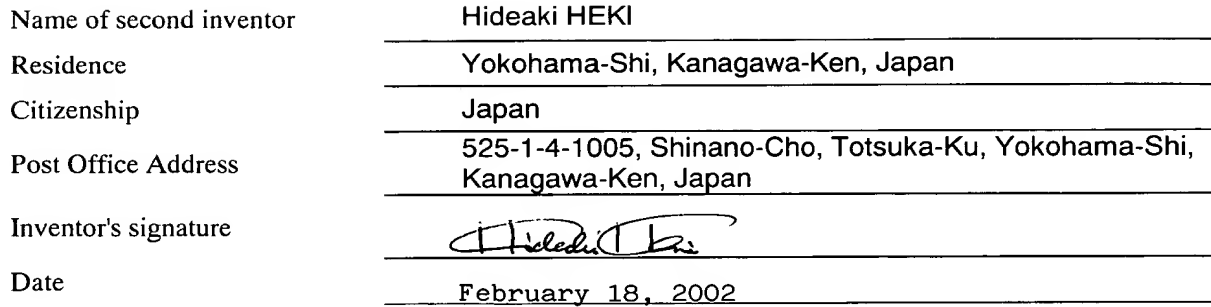 Name of second inventor Hideaki HEKI
Residence Yokohama-Shi, Kanagawa-Ken, Japan
Citizenship Japan
Post Office Address 525-1-4-1005, Shinano-Cho, Totsuka-Ku, Yokohama-Shi,
Kanagawa-Ken, Japan
Inventor's signature Hideaki Heki
Date February 18, 2002